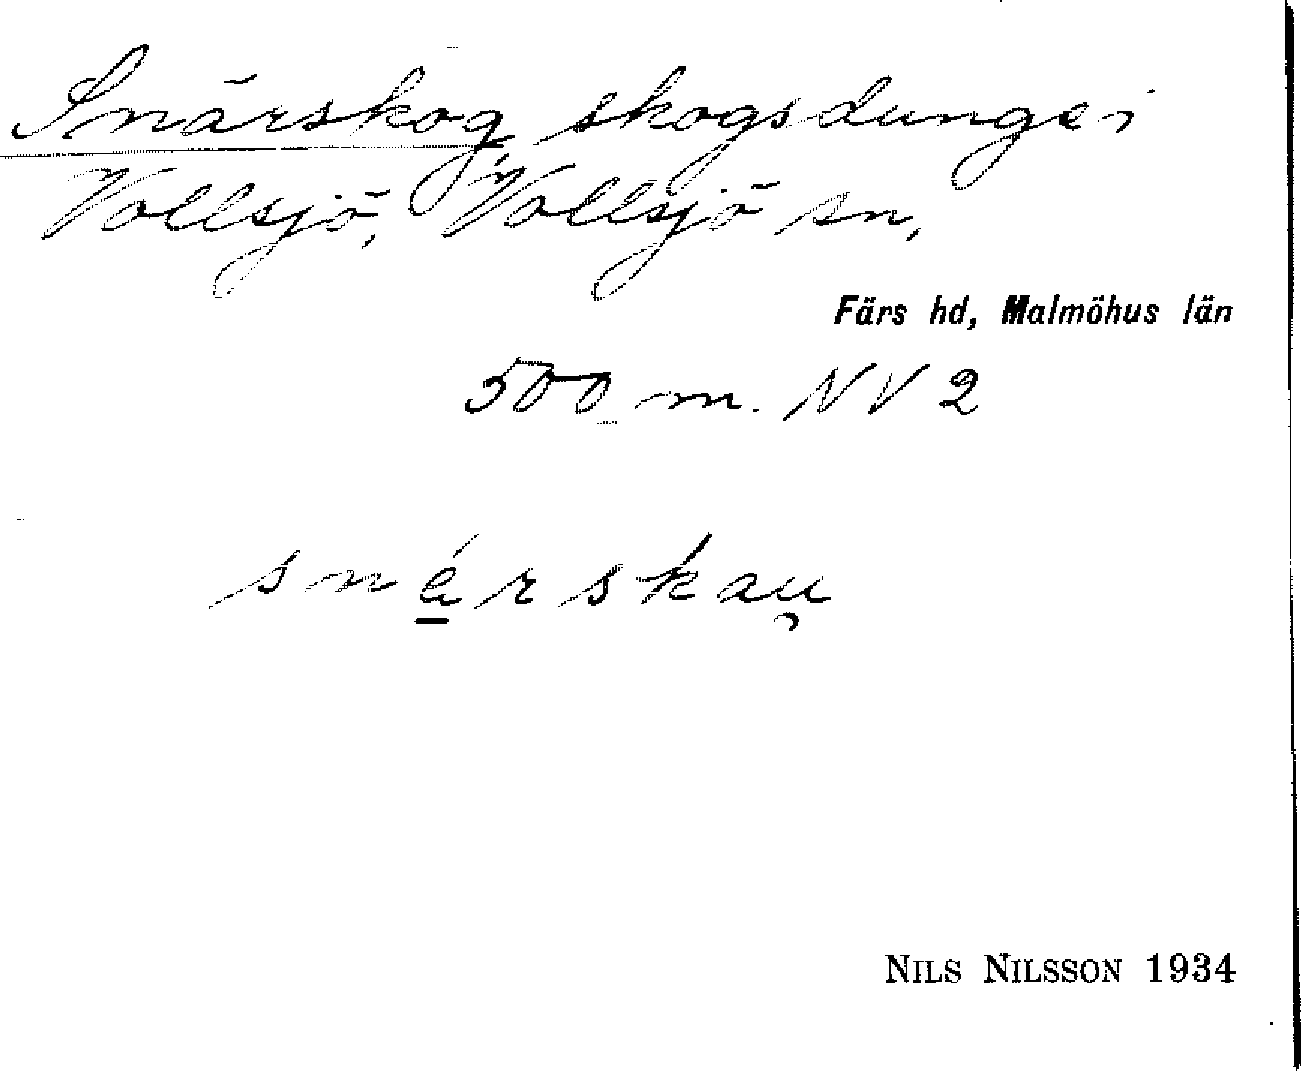 Snärskog skogsdunge i
Vollsjö, Vollsjö sn,
Färs hd, Malmöhus län
500 m. NV 2
snérskau̢
NILS NILSSON 1934